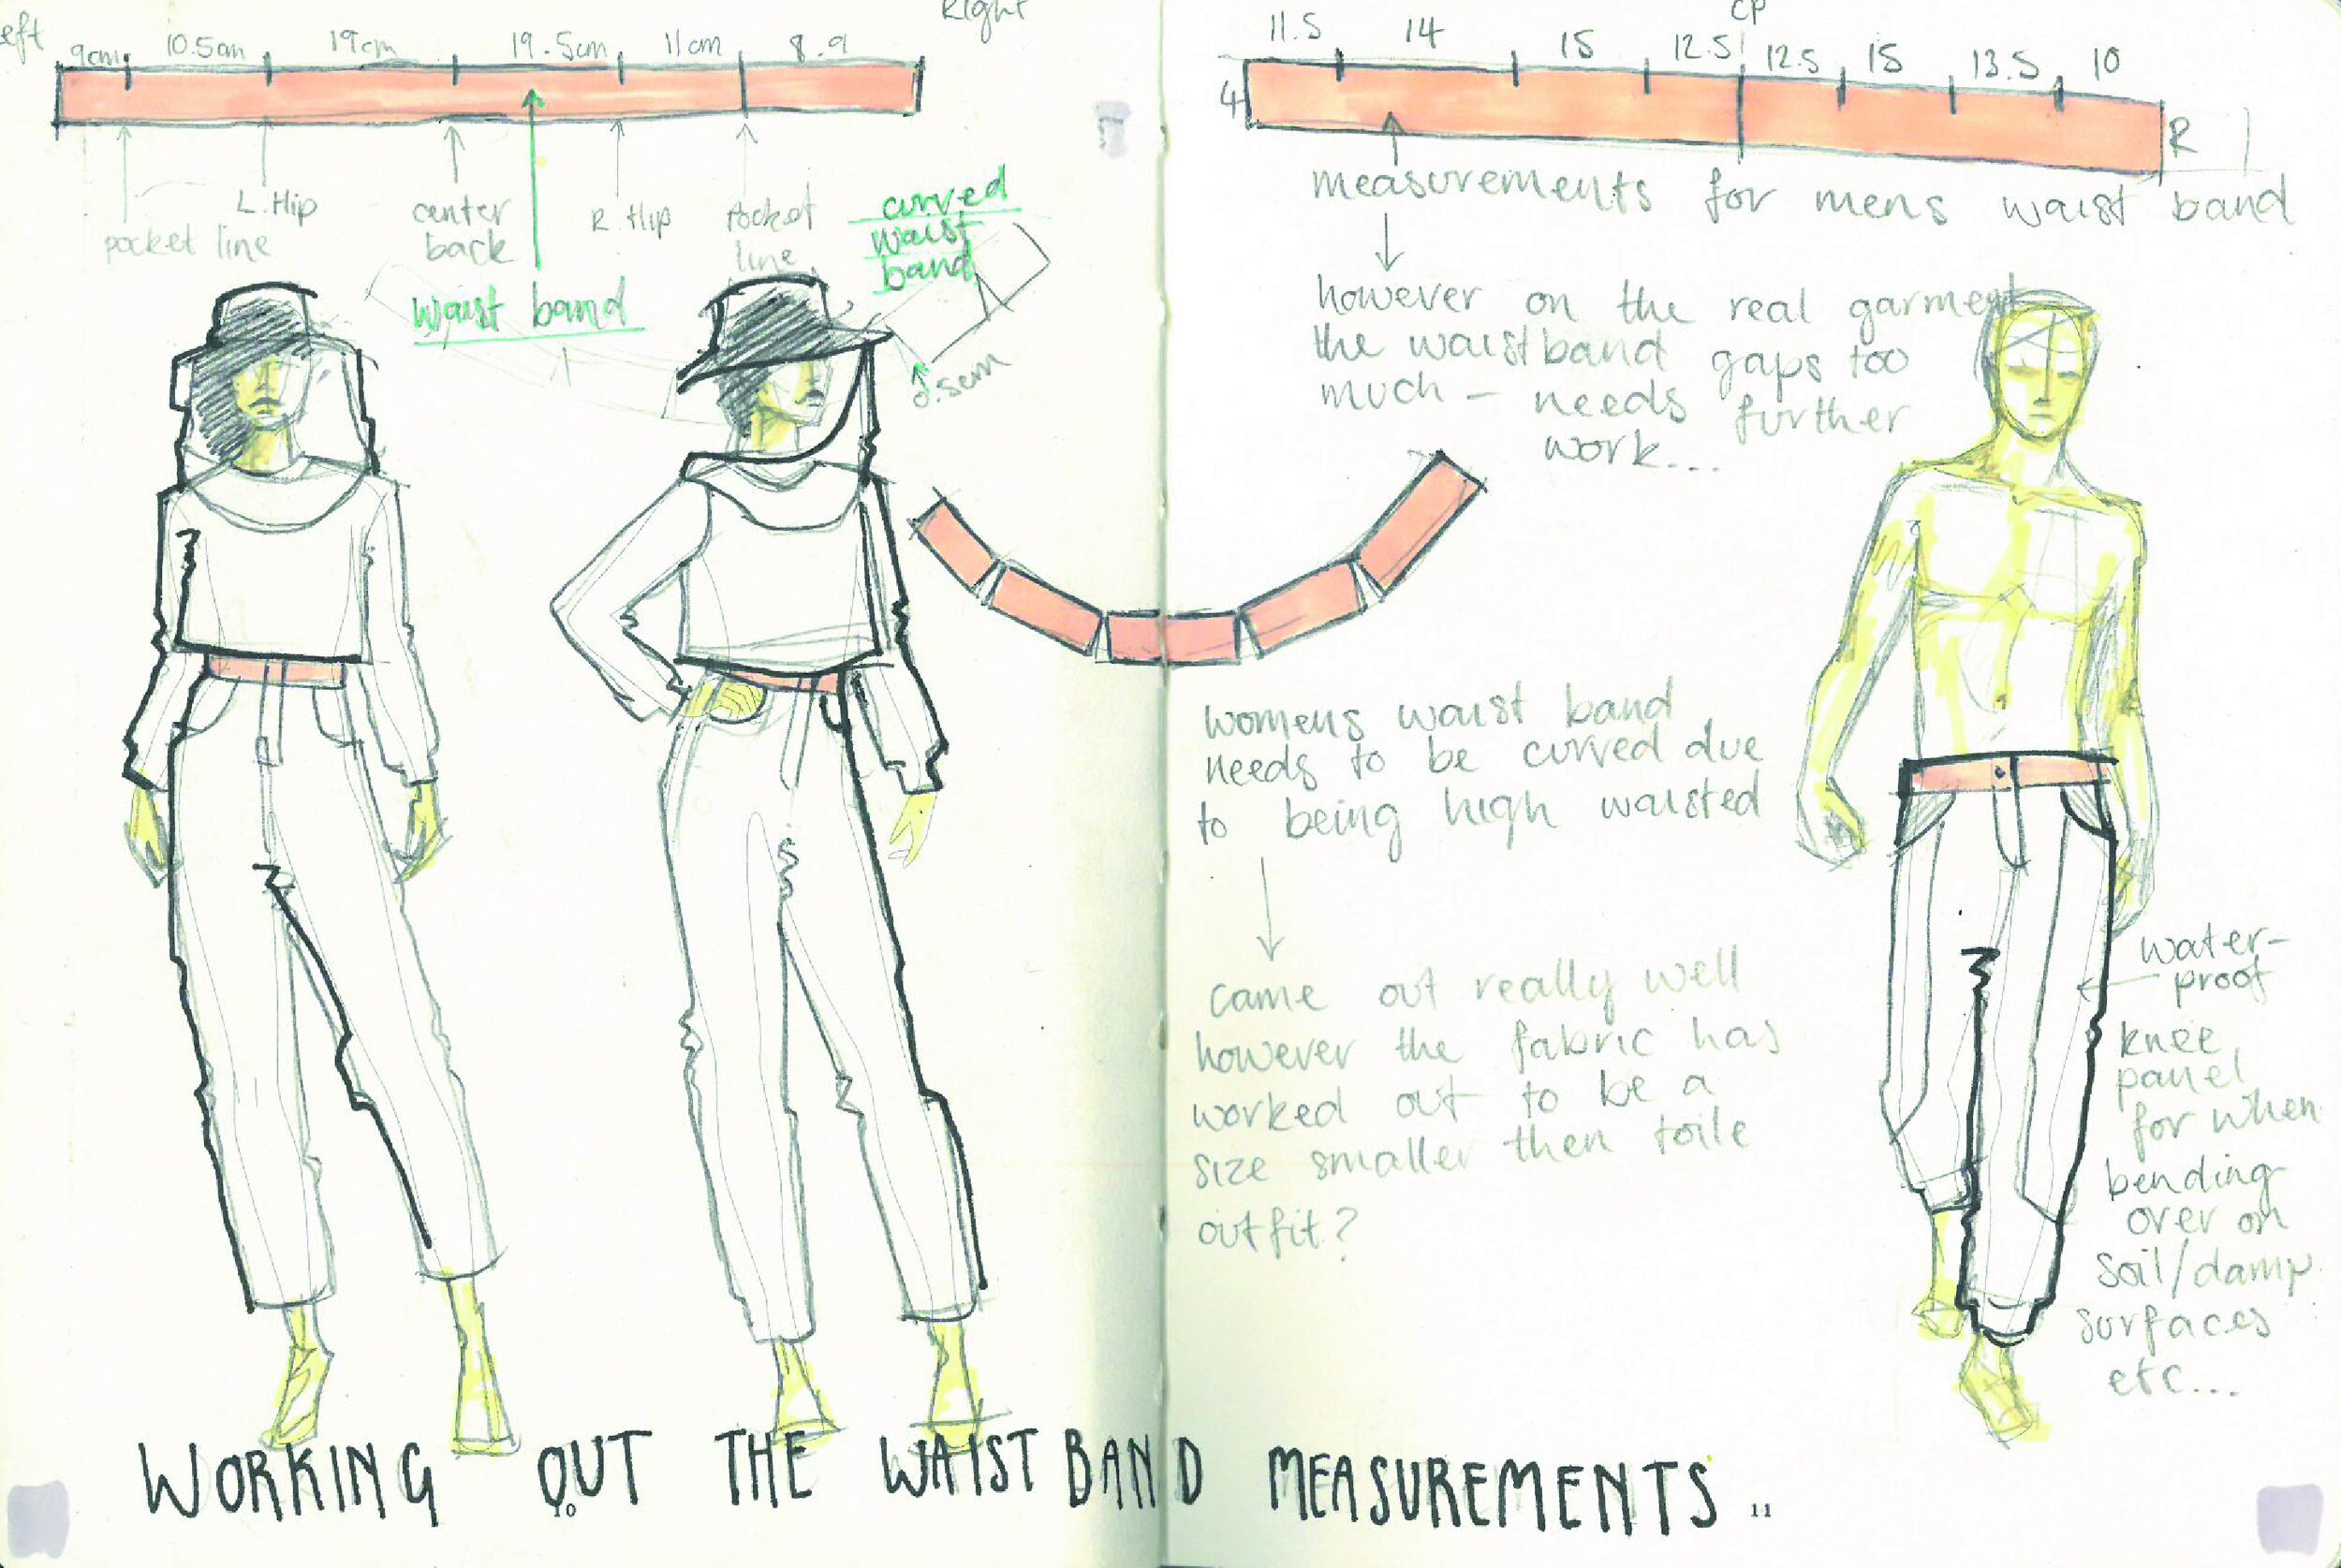 Left
Right
9cm 10.5cm 19cm 19.5cm 11cm 8.9
pocket line
L.Hip
center
back
R.Hip
Pocket
line
waist band
curved
waist
band
11.5 14 15 12.5 CP 12.5 15 13.5 10
4
R
measurements for mens waist band
however on the real garment
the waistband gaps too
much – needs further
work...
womens waist band
needs to be curved due
to being high waisted
came out really well
however the fabric has
worked out to be a
size smaller then toile
outfit?
water-
proof
knee
panel
for when
bending
over on
soil/damp
surfaces
etc...
WORKING OUT THE WAISTBAND MEASUREMENTS..
10
11